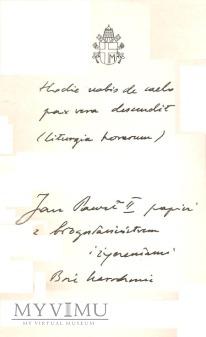 Hodie nobis de caelo
pax vera descendit
(Liturgia horarum)
Jan Paweł II papież
z błogosławieństwem
i życzeniami
Boże Narodzenie
MYVIMU
MY VIRTUAL MUSEUM